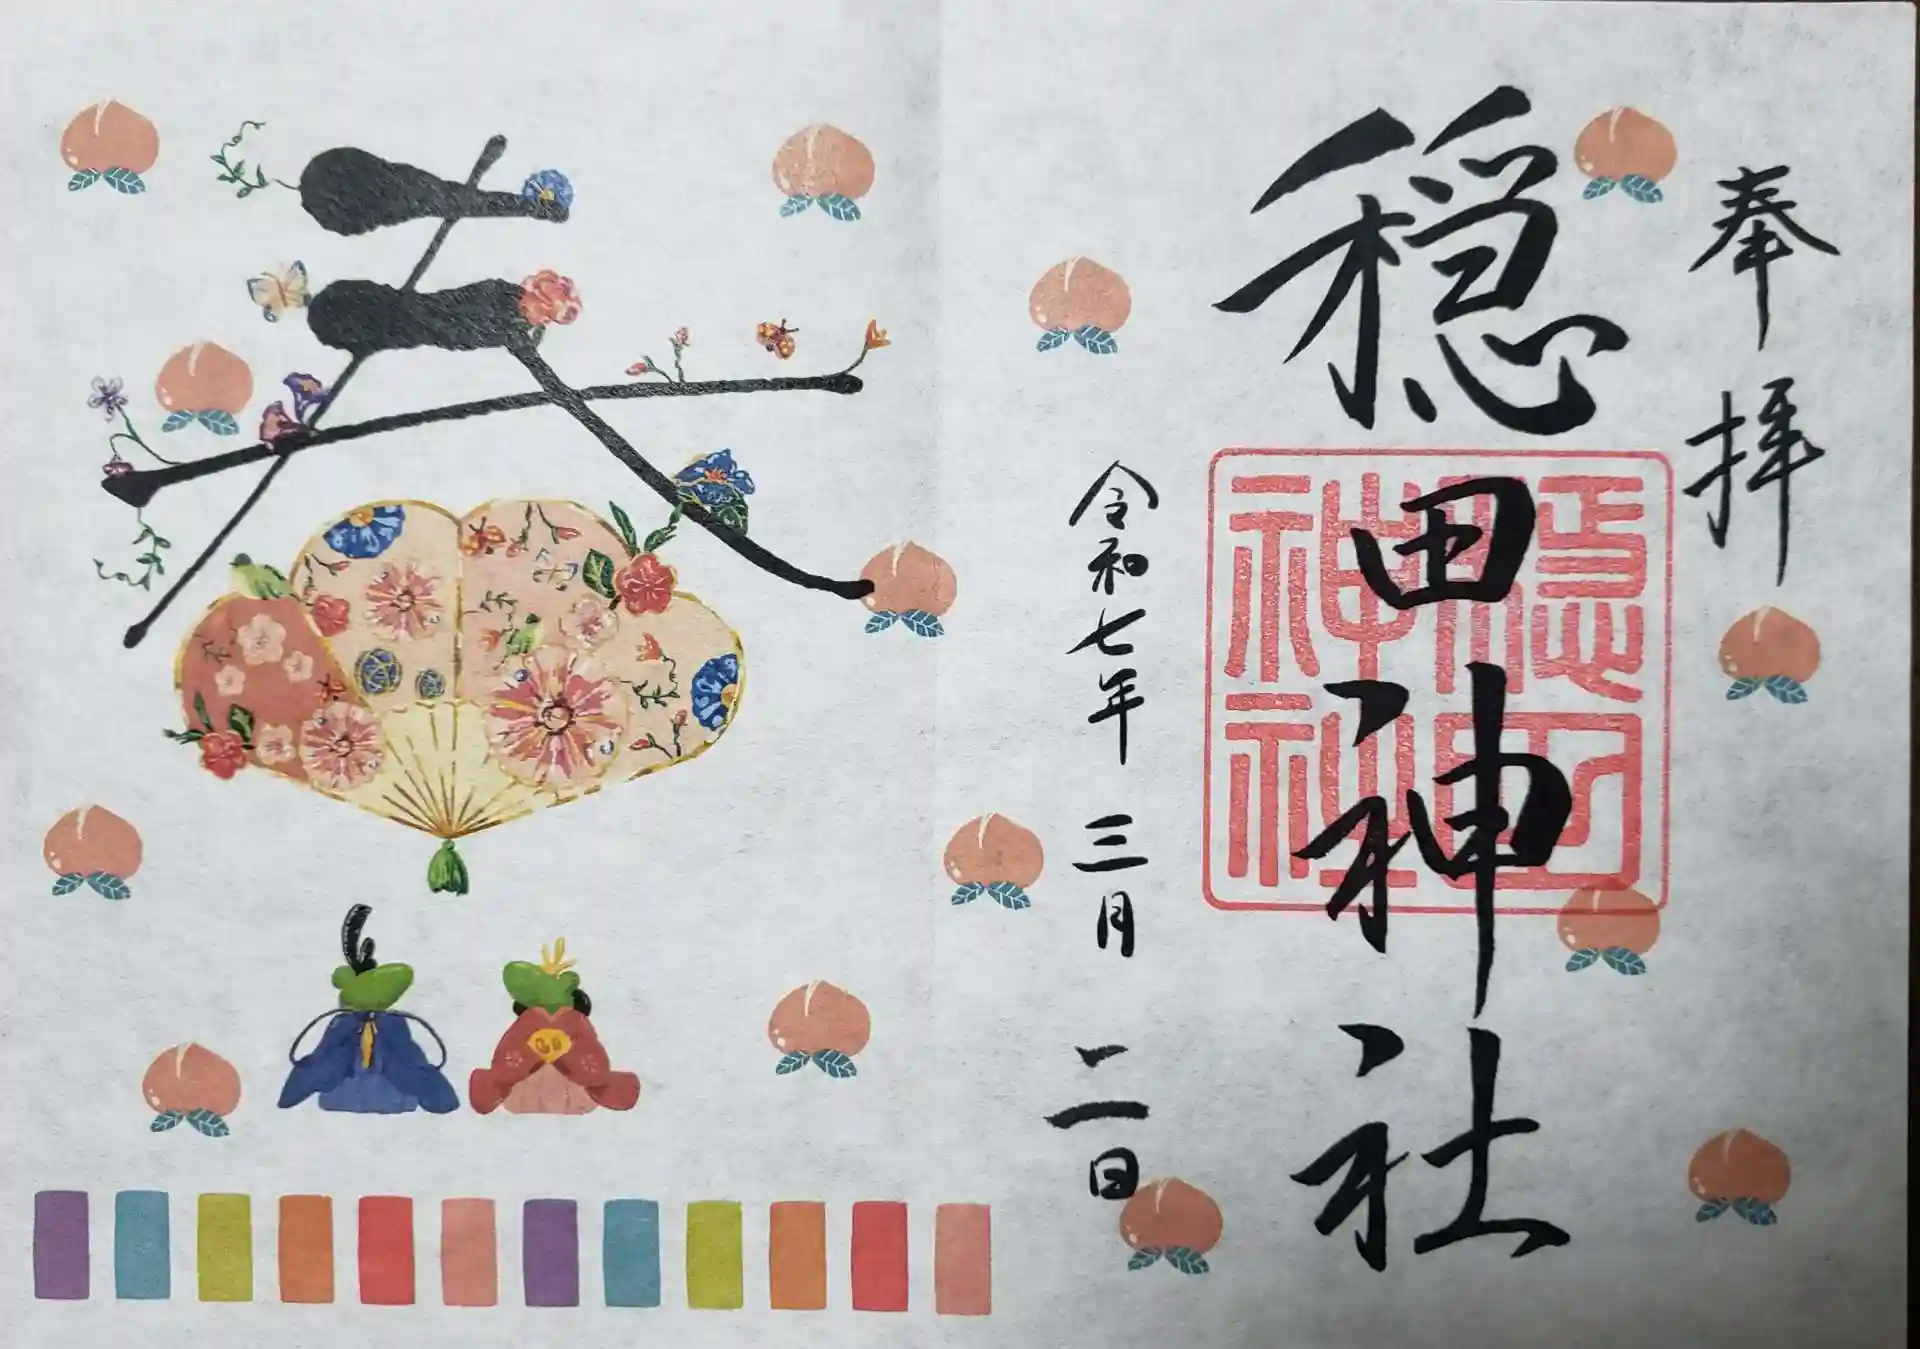 奉拝
穏田神社
穏田
神社
令和七年 三月 二日
春